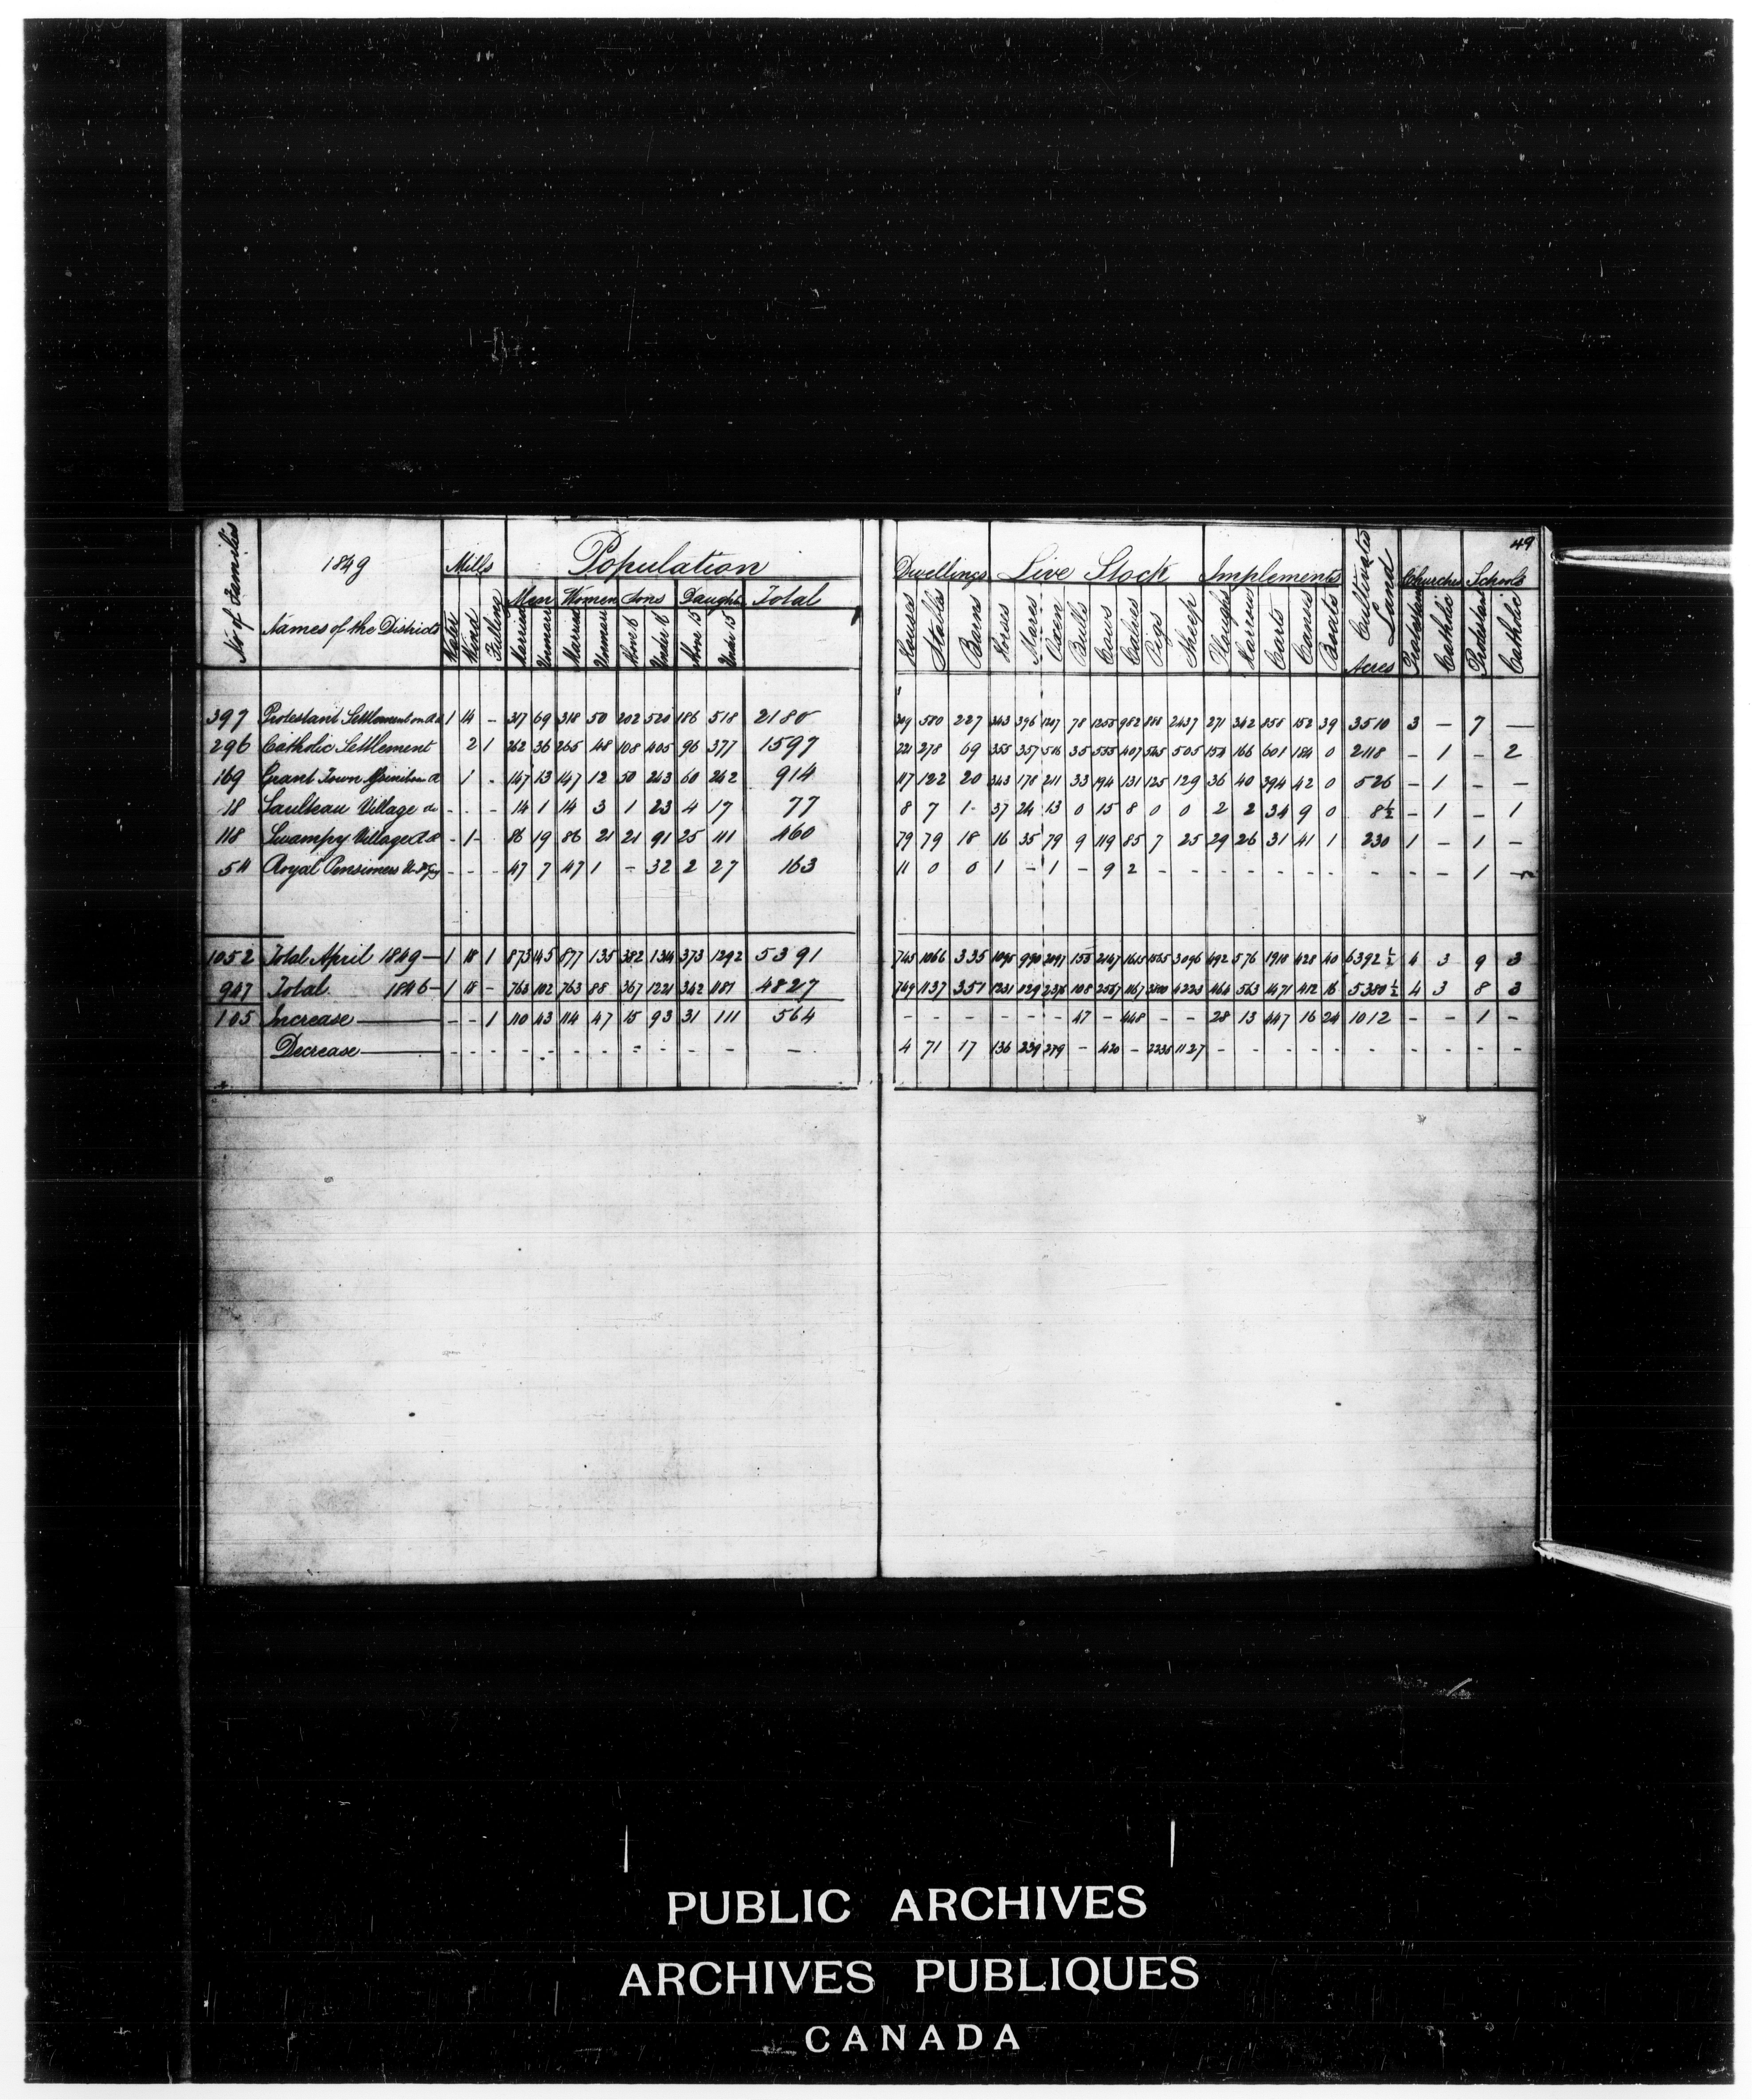 49
No of Families 1849 Mills Population Dwellings Live Stock Implements Cultivated Land Churches Schools
Men Women Sons Daught Total
Names of the Districts Water Wind Fulling Married Unmarri Married Unmarri Above 16 Under 16 Above 15 Under 15 Houses Stables Barns Horses Mares Oxen Bulls Cows Calves Pigs Sheep Ploughs Harrows Carts Canoes Boats Acres Protestant Catholic Protestant Catholic
397 Protestant Settlement 1 14 - 317 69 318 50 202 520 186 518 2180 580 227 343 396 78 982 2437 271 342 858 152 39 3510 3 - 7 -
296 Catholic Settlement 2 1 262 36 265 48 108 405 96 377 1597 221 278 69 355 357 506 35 555 407 545 505 154 166 601 184 0 2118 - 1 - 2
169 Grant Town 1 - 147 13 147 12 50 243 60 242 914 117 122 20 343 178 211 33 194 131 125 129 36 40 394 42 0 526 - 1 - -
18 Saulteau Village do - - - 14 1 14 3 1 23 4 17 77 8 7 1 37 24 13 0 15 8 0 0 2 2 34 9 0 8½ - 1 - 1
118 Swampy Village - 1 - 86 19 86 21 21 91 25 111 460 79 79 18 16 35 79 9 119 85 7 25 29 26 31 41 1 230 1 - 1 -
54 Royal Pensioners - - - 47 7 47 1 - 32 2 27 163 11 0 0 1 - 1 - 9 2 - - - - - - - - - - 1 -
1052 Total April 1849 1 18 1 873 145 877 135 382 1314 373 1292 5391 745 1066 335 1095 990 2097 155 2147 1615 1565 3096 492 576 1918 428 40 6392½ 4 3 9 3
947 Total 1846 1 18 - 763 102 763 88 367 1221 342 1181 4827 749 1137 351 1231 2376 108 2567 1167 3800 4223 464 563 1471 412 16 5380½ 4 3 8 3
105 Increase - - 1 110 43 114 47 15 93 31 111 564 - - - - - - 47 - 448 - - 28 13 447 16 24 1012 - - 1 -
Decrease - - - - - - - - - - - - 4 71 17 136 239 279 - 420 - 2235 1127 - - - - - - - - - -
PUBLIC ARCHIVES
ARCHIVES PUBLIQUES
CANADA